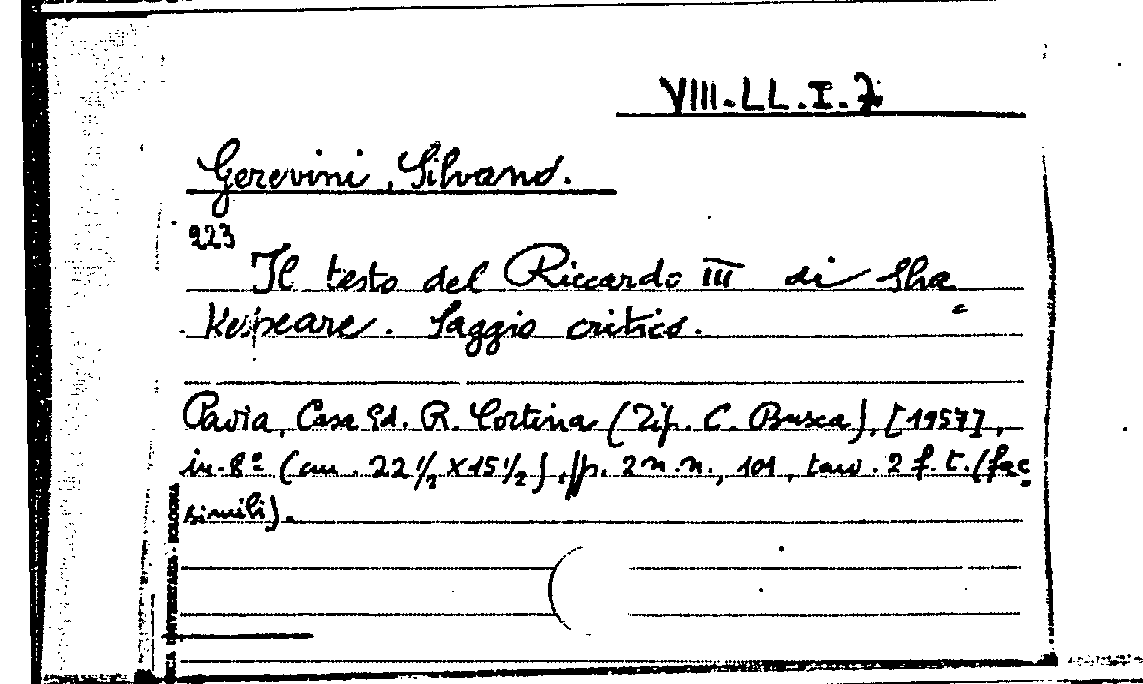 VIII-LL.I.7
Gerevini, Silvano.
223
Il testo del Riccardo III di Sha
kespeare. Saggio critico.
Pavia, Casa Ed. R. Cortina (Tip. C. Busca), [1957],
in-8º (cm. 22 1/2 X 15 1/2), pp. 2 n.n., 101, tav. 2 f.t. (fac
simili).
UNIVERSITARIA - BOLOGNA